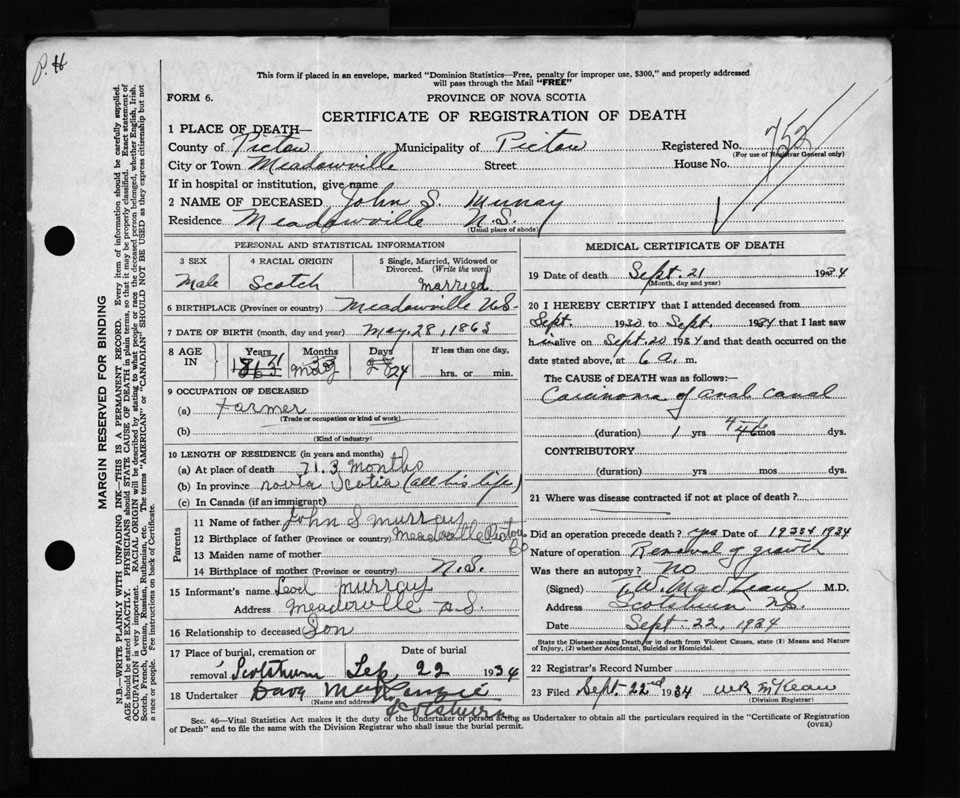 P. H
This form if placed in an envelope, marked "Dominion Statistics—Free, penalty for improper use, $300," and properly addressed
will pass through the Mail "FREE"
FORM 6.
PROVINCE OF NOVA SCOTIA
CERTIFICATE OF REGISTRATION OF DEATH
1 PLACE OF DEATH—
County of Pictou Municipality of Pictou Registered No. 752
(For use of Registrar General only)
City or Town Meadowville Street House No.
If in hospital or institution, give name
2 NAME OF DECEASED John S. Murray
Residence Meadowville N.S.
(Usual place of abode)
PERSONAL AND STATISTICAL INFORMATION
3 SEX 4 RACIAL ORIGIN 5 Single, Married, Widowed or Divorced. (Write the word)
Male Scotch Married
6 BIRTHPLACE (Province or country) Meadowville N.S.
7 DATE OF BIRTH (month, day and year) May 28, 1863
8 AGE IN Years Months Days If less than one day,
71 3 24 hrs. or min.
9 OCCUPATION OF DECEASED
(a) Farmer
(Trade or occupation or kind of work)
(b)
(Kind of industry)
10 LENGTH OF RESIDENCE (in years and months)
(a) At place of death 71. 3 months
(b) In province nova Scotia (all his life)
(c) In Canada (if an immigrant)
Parents
11 Name of father John S Murray
12 Birthplace of father (Province or country) Meadowville Pictou Co
13 Maiden name of mother
14 Birthplace of mother (Province or country) N.S.
15 Informant's name Murray
Address Meadowville N.S.
16 Relationship to deceased Son
17 Place of burial, cremation or removal Date of burial
Scotsburn Sep 22 1934
18 Undertaker Dave McKenzie
(Name and address)
Scotsburn
MEDICAL CERTIFICATE OF DEATH
19 Date of death Sept. 21 1934
(Month, day and year)
20 I HEREBY CERTIFY that I attended deceased from
Sept. 1930 to Sept. 1934 that I last saw
him alive on Sept. 20 1934 and that death occurred on the
date stated above, at 6 a. m.
The CAUSE of DEATH was as follows:—
Carcinoma of anal canal
(duration) 1 yrs mos dys.
CONTRIBUTORY
(duration) yrs mos dys.
21 Where was disease contracted if not at place of death?
Did an operation precede death? yes Date of 1933 & 1934
Nature of operation Removal of growth
Was there an autopsy? No
(Signed) T. W. MacLean M.D.
Address Scotsburn N.S.
Date Sept 22, 1934
State the Disease causing Death, or in death from Violent Causes, state (1) Means and Nature
of Injury, (2) whether Accidental, Suicidal or Homicidal.
22 Registrar's Record Number
23 Filed Sept. 22nd 1934 WR McKean
(Division Registrar)
Sec. 46—Vital Statistics Act makes it the duty of the Undertaker or person acting as Undertaker to obtain all the particulars required in the "Certificate of Registration
of Death" and to file the same with the Division Registrar who shall issue the burial permit. (OVER)
MARGIN RESERVED FOR BINDING
N.B.—WRITE PLAINLY WITH UNFADING INK—THIS IS A PERMANENT RECORD. Every item of information should be carefully supplied.
AGE should be stated EXACTLY. PHYSICIANS should STATE CAUSE OF DEATH in plain terms, so that it may be properly classified. Exact statement of
OCCUPATION is very important. RACIAL ORIGIN will be described by stating to what people or race the deceased person belonged, whether English, Irish,
Scotch, French, German, Russian, Ruthenian, etc. The terms "AMERICAN" or "CANADIAN" SHOULD NOT BE USED as they express citizenship but not
a race or people. Fee instructions on back of Certificate.